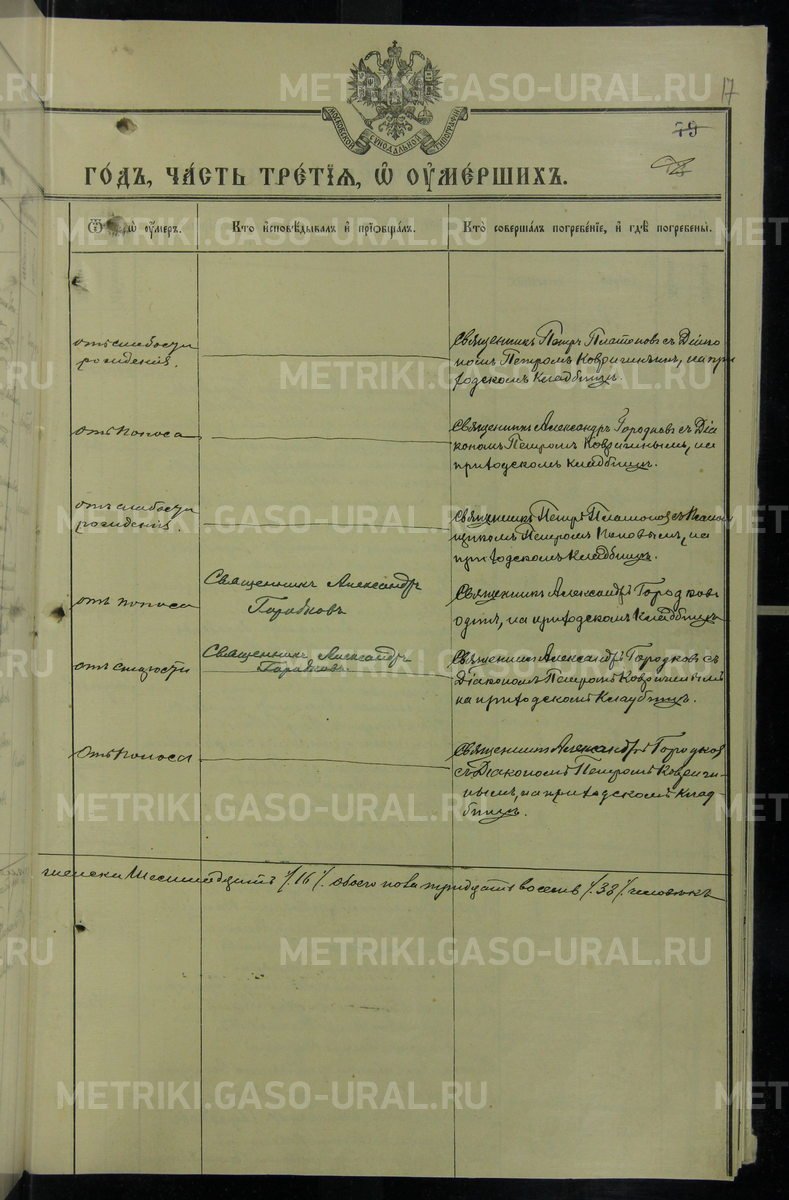 METRIKI.GASO-URAL.RU
17
МОСКОВСКОЙ СѴНОДАЛЬНОЙ ТИПОГРАФІИ
79
ГО́ДЪ, ЧА́СТЬ ТРЕ́ТЇѦ, Ѡ҆ ОУ҆МЕ́РШИХЪ.
Ѿ ѡ҆ у҆́меръ.
Кто̀ и҆сповѣ́дывалъ и҆ прїѻбща́лъ.
Кто̀ соверша́лъ погребе́нїе, и҆ гдѣ̀ погребены̀.
отъ слабости
рожденія.
Священникъ Петръ Платоновъ съ Діако
номъ Петромъ Ковригинымъ, на при
ходскомъ кладбищѣ.
отъ поноса
Священникъ Александръ Городковъ съ Діа
кономъ Петромъ Ковригинымъ, на
приходскомъ кладбищѣ.
отъ слабости
рожденія.
Священникъ Петръ Платоновъ съ Псалом
щикомъ Петромъ Поповымъ, на
приходскомъ кладбищѣ.
отъ поноса
Священникъ Александръ
Городковъ
Священникъ Александръ Городковъ
одинъ, на приходскомъ кладбищѣ
отъ старости
Священникъ Александръ
Городковъ.
Священникъ Александръ Городковъ съ
Діакономъ Петромъ Ковригинымъ
на приходскомъ кладбищѣ.
отъ поноса
Священникъ Александръ Городков
съ Діакономъ Петромъ Ковриги-
нымъ, на приходскомъ клад-
бищѣ.
женска шестнадцать /.16/. обоего пола тридцать восемь /.38/. человѣкъ